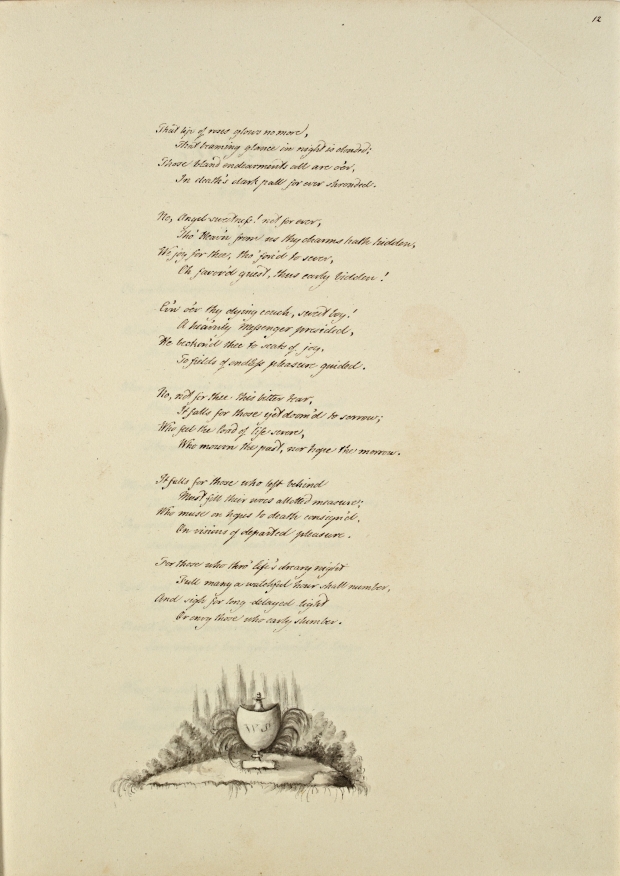 12
That lip of roses glows no more,
That beaming glance in night is clouded;
Those bland endearments all are o'er,
In death's dark pall for ever shrouded.
No, Angel sweetness! not for ever,
Tho' Heav'n from us thy charms hath hidden,
We joy for thee, tho' forc'd to sever,
Oh favor'd guest, thus early bidden!
E'en o'er thy dying couch, sweet boy!
A heav'nly Messenger presided,
He beckon'd thee to seats of joy,
To fields of endless pleasure guided.
No, not for thee this bitter tear,
It falls for those yet doom'd to sorrow;
Who feel the load of life severe,
Who mourn the past, nor hope the morrow.
It falls for those who left behind
Must fill their woes allotted measure;
Who muse on hopes to death consign'd,
On visions of departed pleasure.
For those who thro' life's dreary night
Full many a watchful hour shall number,
And sigh for long delayed light
Or envy those who early slumber.